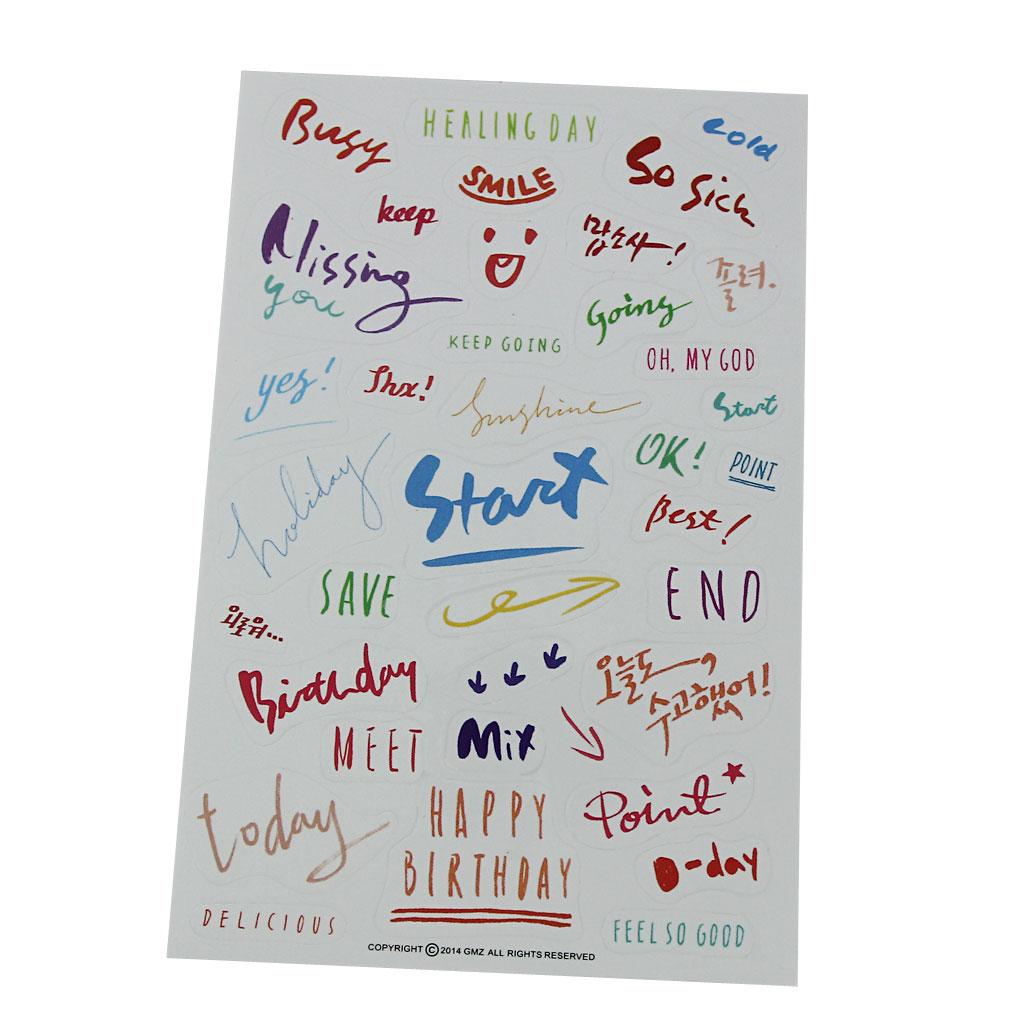 Busy
HEALING DAY
cold
SMILE
So Sick
keep
맙소사!
Missing
you
졸려.
Going
KEEP GOING
OH, MY GOD
yes!
Thx!
Sunshine
Start
OK!
POINT
holiday
Start
Best!
SAVE
END
외로워...
Birthday
오늘도
수고했어!
MEET
Mix
Point
today
HAPPY
BIRTHDAY
D-day
DELICIOUS
FEEL SO GOOD
COPYRIGHT ©2014 GMZ ALL RIGHTS RESERVED